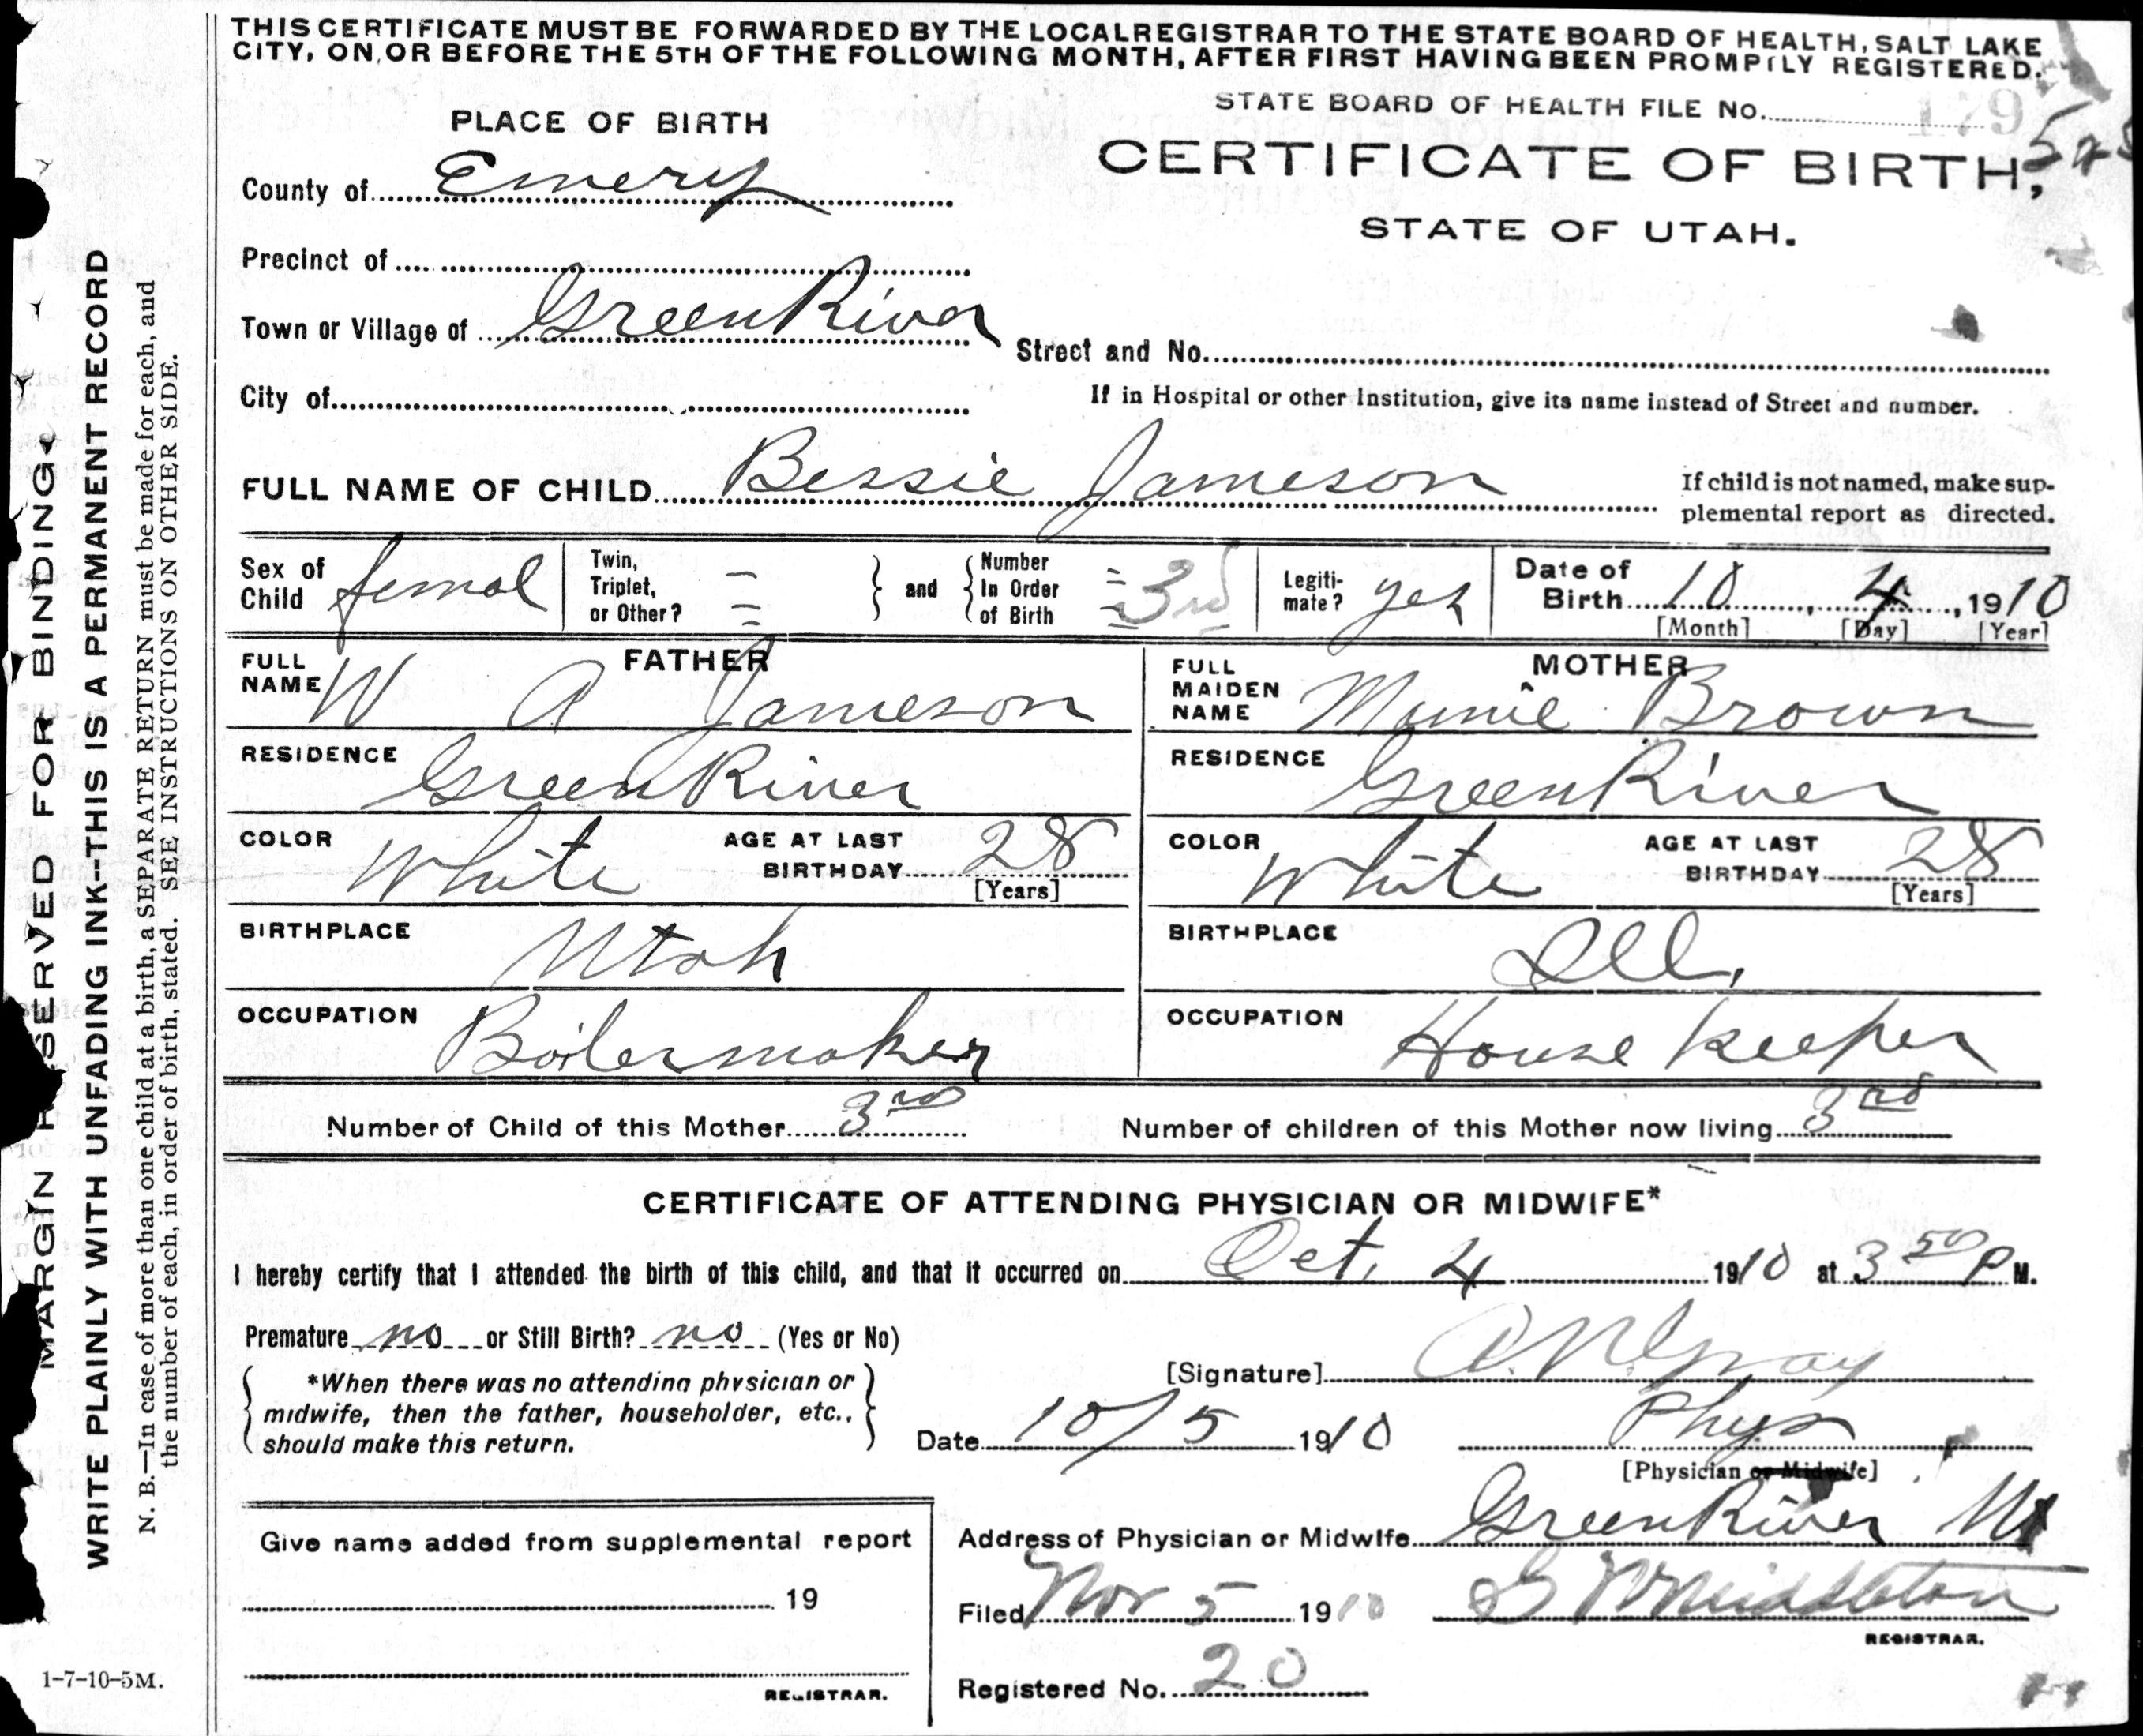 THIS CERTIFICATE MUST BE FORWARDED BY THE LOCAL REGISTRAR TO THE STATE BOARD OF HEALTH, SALT LAKE
CITY, ON OR BEFORE THE 5TH OF THE FOLLOWING MONTH, AFTER FIRST HAVING BEEN PROMPTLY REGISTERED.
STATE BOARD OF HEALTH FILE No. 179
PLACE OF BIRTH
CERTIFICATE OF BIRTH,
STATE OF UTAH.
County of Emery
Precinct of
Town or Village of Green River
Street and No.
City of
If in Hospital or other Institution, give its name instead of Street and number.
FULL NAME OF CHILD Bessie Jameson
If child is not named, make sup-
plemental report as directed.
Sex of Child femal
Twin, Triplet, or Other? =
and
Number In Order of Birth 3rd
Legiti-mate? yes
Date of Birth 10, 4, 1910
[Month] [Day] [Year]
FATHER
FULL NAME W A Jameson
RESIDENCE Green River
COLOR White
AGE AT LAST BIRTHDAY 28
[Years]
BIRTHPLACE Utah
OCCUPATION Boilermaker
MOTHER
FULL MAIDEN NAME Brown
RESIDENCE Green River
COLOR White
AGE AT LAST BIRTHDAY 28
[Years]
BIRTHPLACE Ill.
OCCUPATION House keeper
Number of Child of this Mother 3rd
Number of children of this Mother now living 3rd
CERTIFICATE OF ATTENDING PHYSICIAN OR MIDWIFE*
I hereby certify that I attended the birth of this child, and that it occurred on Oct. 4 1910 at 3 50 P M.
Premature no or Still Birth? no (Yes or No)
*When there was no attending physician or
midwife, then the father, householder, etc.,
should make this return.
[Signature] Gray
Date 10/5 1910
Phys
[Physician or Midwife]
Address of Physician or Midwife Green River Ut
Filed Nov 5 1910
Middleton
REGISTRAR.
Registered No. 20
Give name added from supplemental report
19
REGISTRAR.
MARGIN RESERVED FOR BINDING
WRITE PLAINLY WITH UNFADING INK--THIS IS A PERMANENT RECORD
N. B.—In case of more than one child at a birth, a SEPARATE RETURN must be made for each, and
the number of each, in order of birth, stated. SEE INSTRUCTIONS ON OTHER SIDE.
1-7-10-5M.